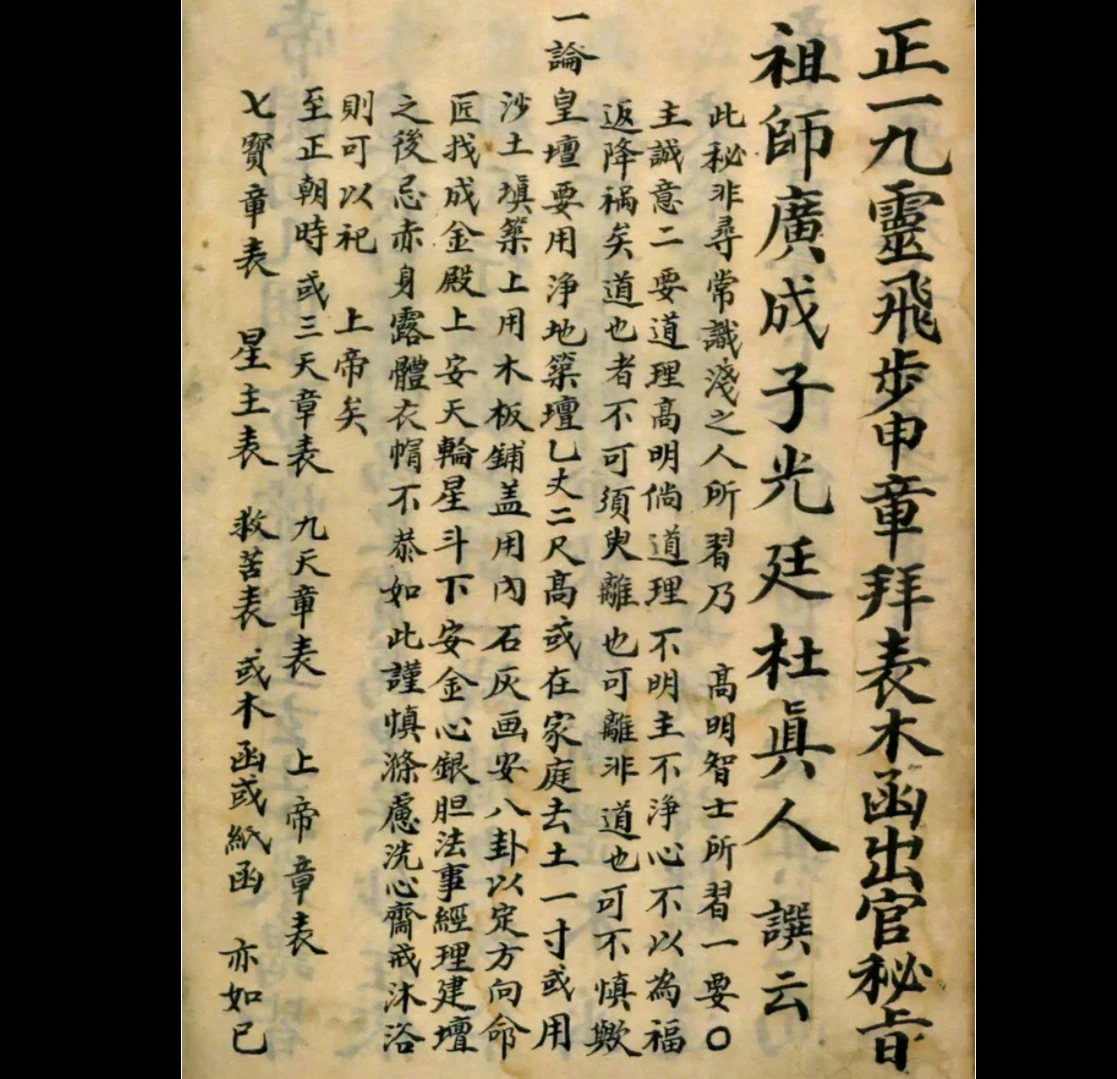 正一九靈飛步申章拜表木函出官秘旨
祖師廣成子光廷杜眞人 譔云
此秘非尋常識淺之人所習乃 高明智士所習一要〇
主誠意二要道理高明倘道理不明主不净心不以為福
返降禍矣道也者不可須臾離也可離非道也可不慎歟
一論皇壇要用净地築壇乙丈二尺高或在家庭去土一寸或用
沙土填築上用木板鋪盖用內石灰画安八卦以定方向命
匠找成金殿上安天輪星斗下安金心銀胆法事經理建壇
之後忌赤身露體衣帽不恭如此謹慎滌慮洗心齋戒沐浴
則可以祀 上帝矣
至正朝時或三天章表 九天章表 上帝章表
七寳章表 星主表 救苦表 或木函或紙函 亦如已